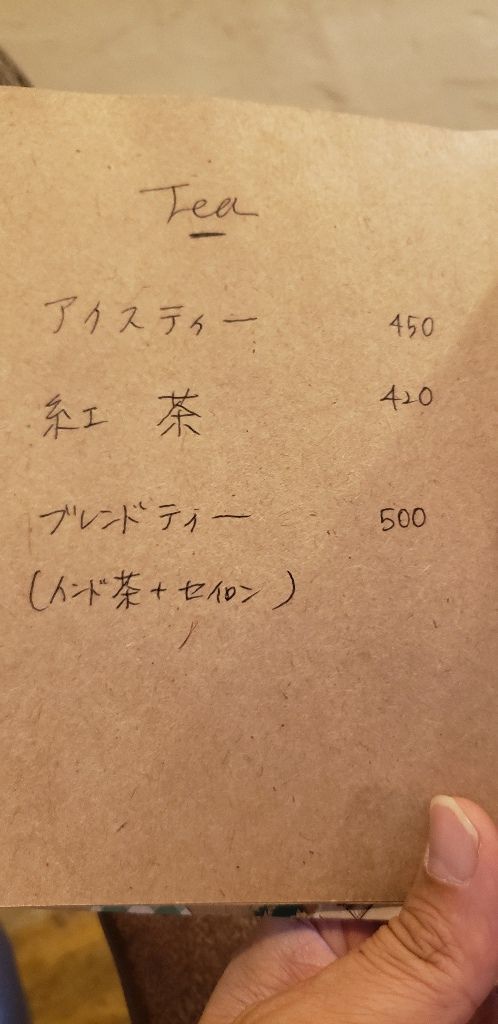 Tea
アイスティー 450
紅 茶 420
ブレンドティー 500
(インド茶+セイロン)